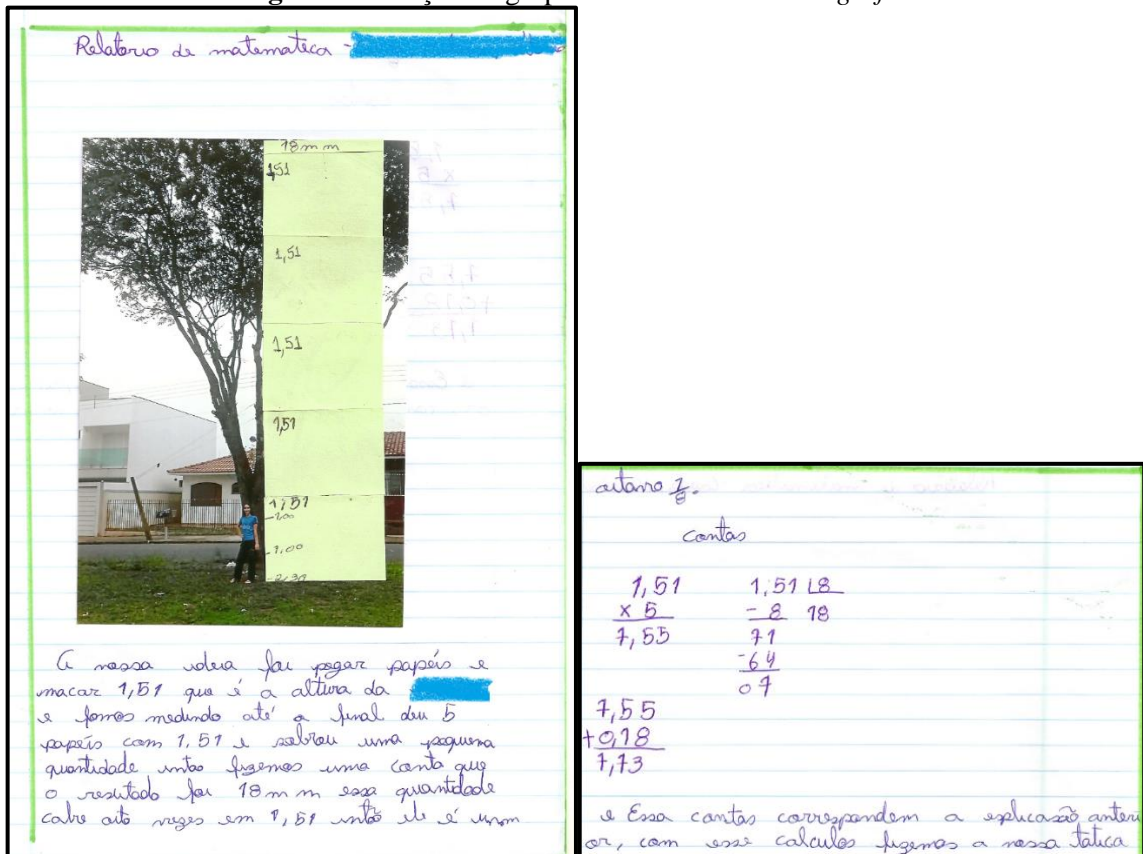 Relatorio de matematica -
18 m m
1,51
1,51
1,51
1,51
1,51
1,00
2,30
A nossa ideia foi pegar papéis e
macar 1,51 que é a altura da
e fomos medindo até a final deu 5
papéis com 1,51 e sobrou uma pequena
quantidade então fizemos uma conta que
o resutado foi 18 m m essa quantidade
cabe oito vezes em 1,51 então ele é um
oitavo 1/8.
contas
1,51
x 5
7,55
1,51 8
- 8 18
71
-64
07
7,55
+0,18
7,73
e Essa contas correspondem a esplicasão anteri
or, com esse calculos fizemos a nossa tatica